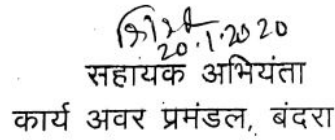 20.1.2020
सहायक अभियंता
कार्य अवर प्रमंडल, बंदरा